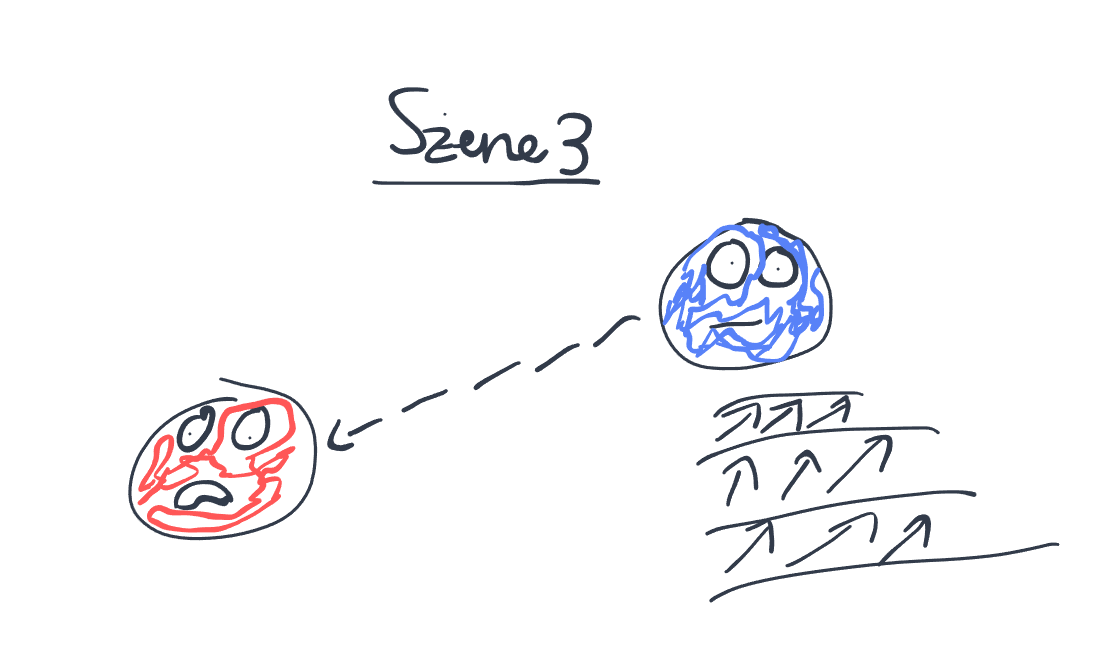 Szene 3